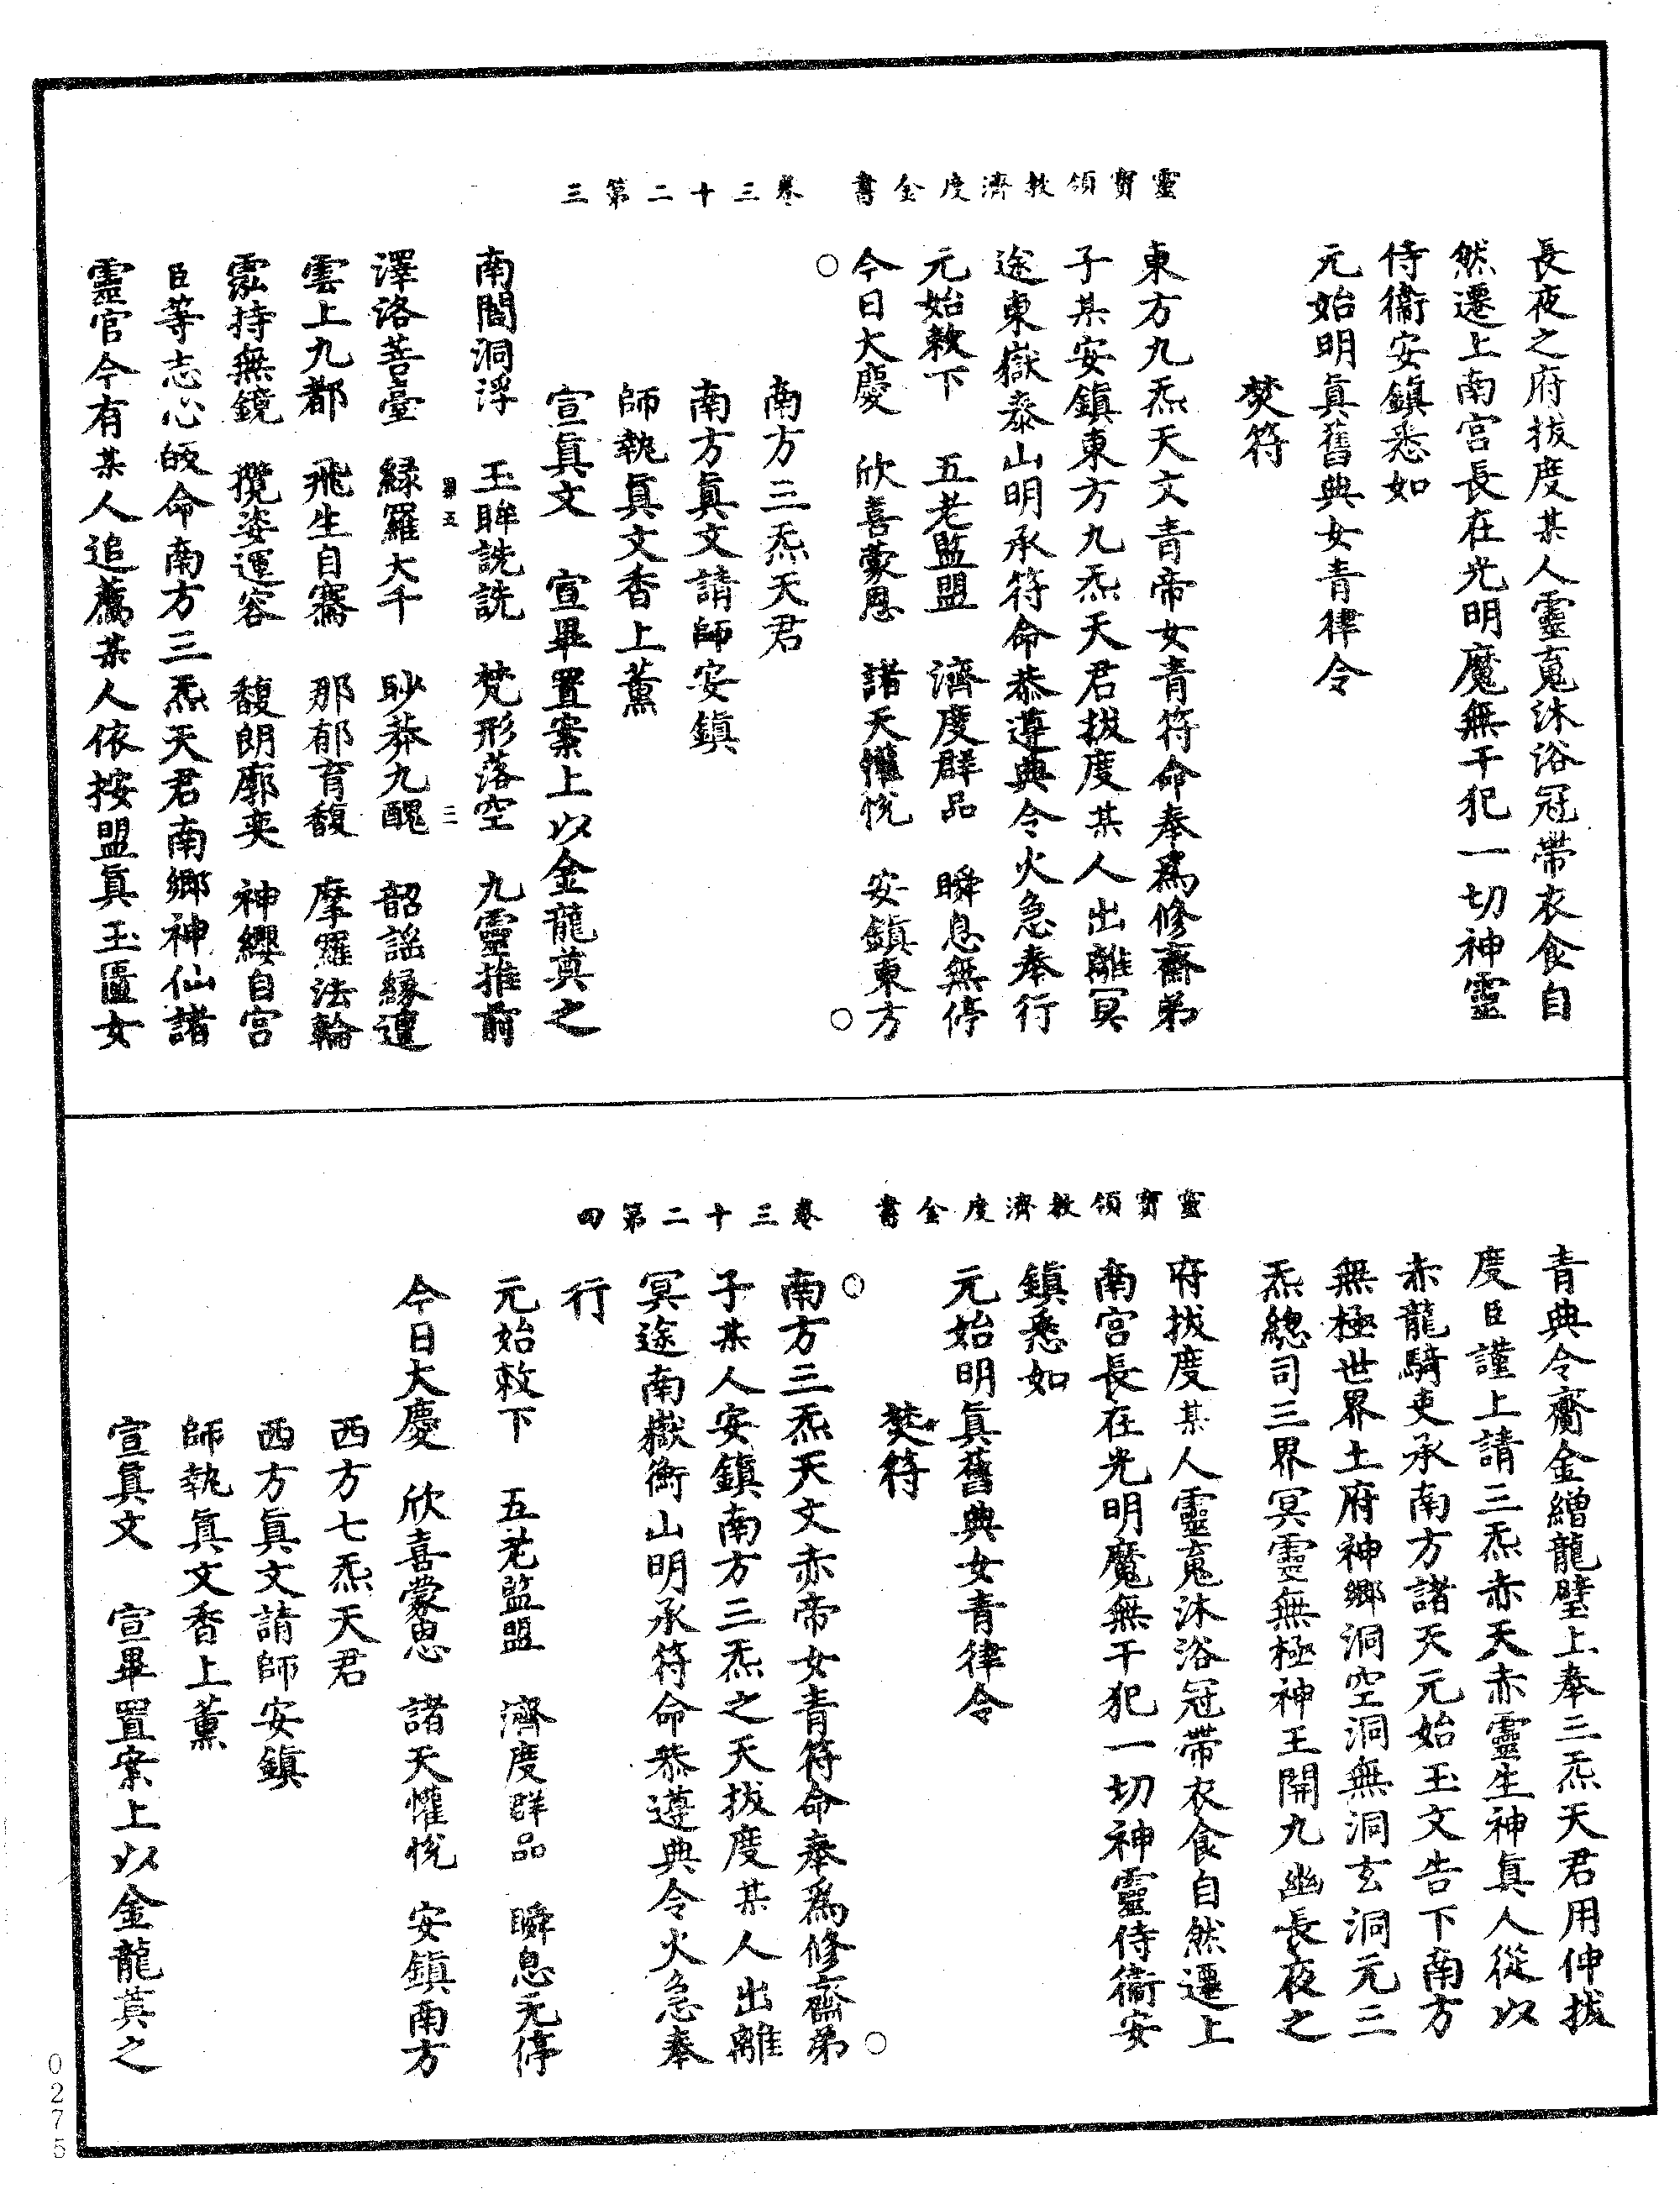 靈寶領教濟度金書　卷三十二第三
長夜之府拔度某人靈䰟沐浴冠帶衣食自
然遷上南宮長在光明魔無干犯一切神靈
侍衞安鎮悉如
元始明眞舊典女青律令
焚符
東方九炁天文青帝女青符命奉爲修齋弟
子某安鎮東方九炁天君拔度某人出離冥
途東嶽泰山明承符命恭遵典令火急奉行
元始敕下　五老監盟　濟度群品　瞬息無停
今日大慶　欣喜蒙恩　諸天懽悅　安鎮東方
南方三炁天君
南方眞文請師安鎮
師執眞文香上薰
宣眞文　宣畢置案上以金龍奠之
南閻洞浮　玉眸詵詵　梵形落空　九靈推前
澤洛菩臺　緑羅大千　眇莽九醜　韶謡緣邅
雲上九都　飛生自騫　那郁育馥　摩羅法輪
霐持無鏡　攬姿運容　馥朗廓奕　神纓自宮
臣等志心皈命南方三炁天君南鄉神仙諸
靈官今有某人追薦某人依按盟眞玉匱女
靈寶領教濟度金書　卷三十二第四
青典令齎金繒龍璧上奉三炁天君用伸拔
度臣謹上請三炁赤天赤靈生神眞人從以
赤龍騎吏承南方諸天元始玉文告下南方
無極世界土府神鄉洞空洞無洞玄洞元三
炁總司三界冥靈無極神王開九幽長夜之
府拔度某人靈䰟沐浴冠帶衣食自然遷上
南宮長在光明魔無干犯一切神靈侍衞安
鎮悉如
元始明眞舊典女青律令
焚符
南方三炁天文赤帝女青符命奉爲修齋弟
子某人安鎮南方三炁之天拔度某人出離
冥途南嶽衡山明承符命恭遵典令火急奉
行
元始敕下　五老監盟　濟度群品　瞬息无停
今日大慶　欣喜蒙恩　諸天懽悅　安鎮南方
西方七炁天君
西方眞文請師安鎮
師執眞文香上薰
宣眞文　宣畢置案上以金龍奠之
0275